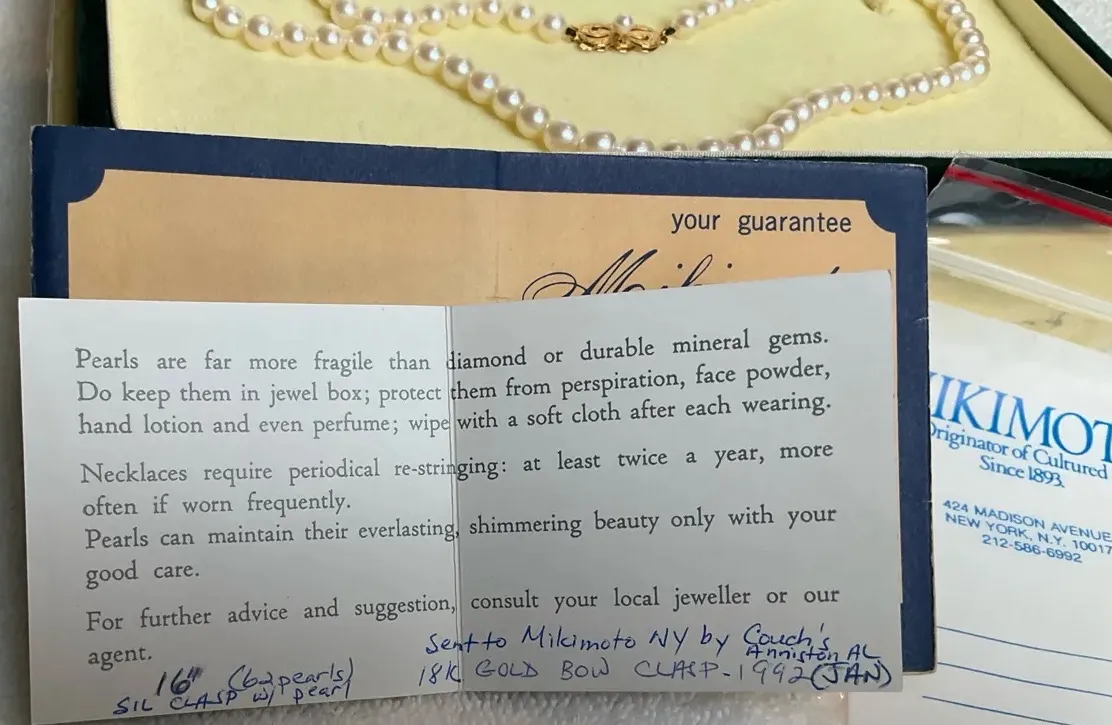 your guarantee
Pearls are far more fragile than diamond or durable mineral gems.
Do keep them in jewel box; protect them from perspiration, face powder,
hand lotion and even perfume; wipe with a soft cloth after each wearing.
Necklaces require periodical re-stringing: at least twice a year, more
often if worn frequently.
Pearls can maintain their everlasting, shimmering beauty only with your
good care.
For further advice and suggestion, consult your local jeweller or our
agent.
16" (62 pearls)
SIL CLASP w/ pearl
Sent to Mikimoto NY by Couch's
Anniston AL
18K GOLD BOW CLASP - 1992 (JAN)
IKIMOT
Originator of Cultured
Since 1893.
424 MADISON AVENUE
NEW YORK, N.Y. 10017
212-586-6992